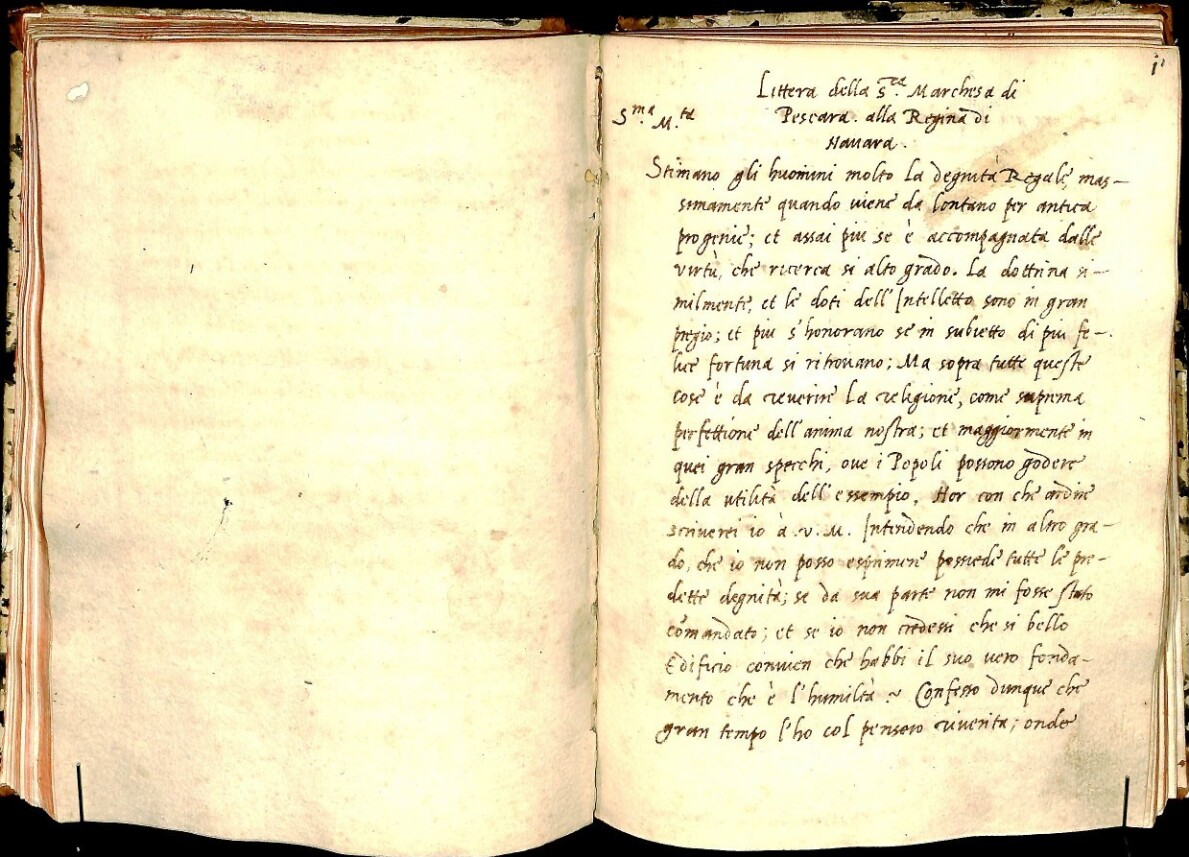 1
Littera della S.ra Marchesa di
S.ma M.ta
Pescara. alla Regina di
Nauara.
Stimano gli huomini molto La degnità Regale, mas-
simamente quando uiene da lontano per antica
progenie; et assai piu se è accompagnata dalle
virtù, che ricerca si alto grado. La dottrina si-
milmente, et le doti dell'Intelletto sono in gran
pregio; et piu s'honorano se in subietto di piu fe-
lice fortuna si ritrouano; Ma sopra tutte queste
cose è da reuerire La religione, come suprema
perfettione dell'anima nostra; et maggiormente in
quei gran specchi, oue i Popoli possono godere
della utilità dell'essempio. Hor con che ardire
scriuerei io à .v. M. Intendendo che in altro gra-
do, che io non posso esprimere possiede tutte le pre-
dette degnità; se da sua parte non mi fosse stato
comandato; et se io non credessi che si bello
Edificio conuien che habbi il suo uero fonda-
mento che è l'humiltà ~ Confesso dunque che
gran tempo l'ho col pensero riuerita; onde